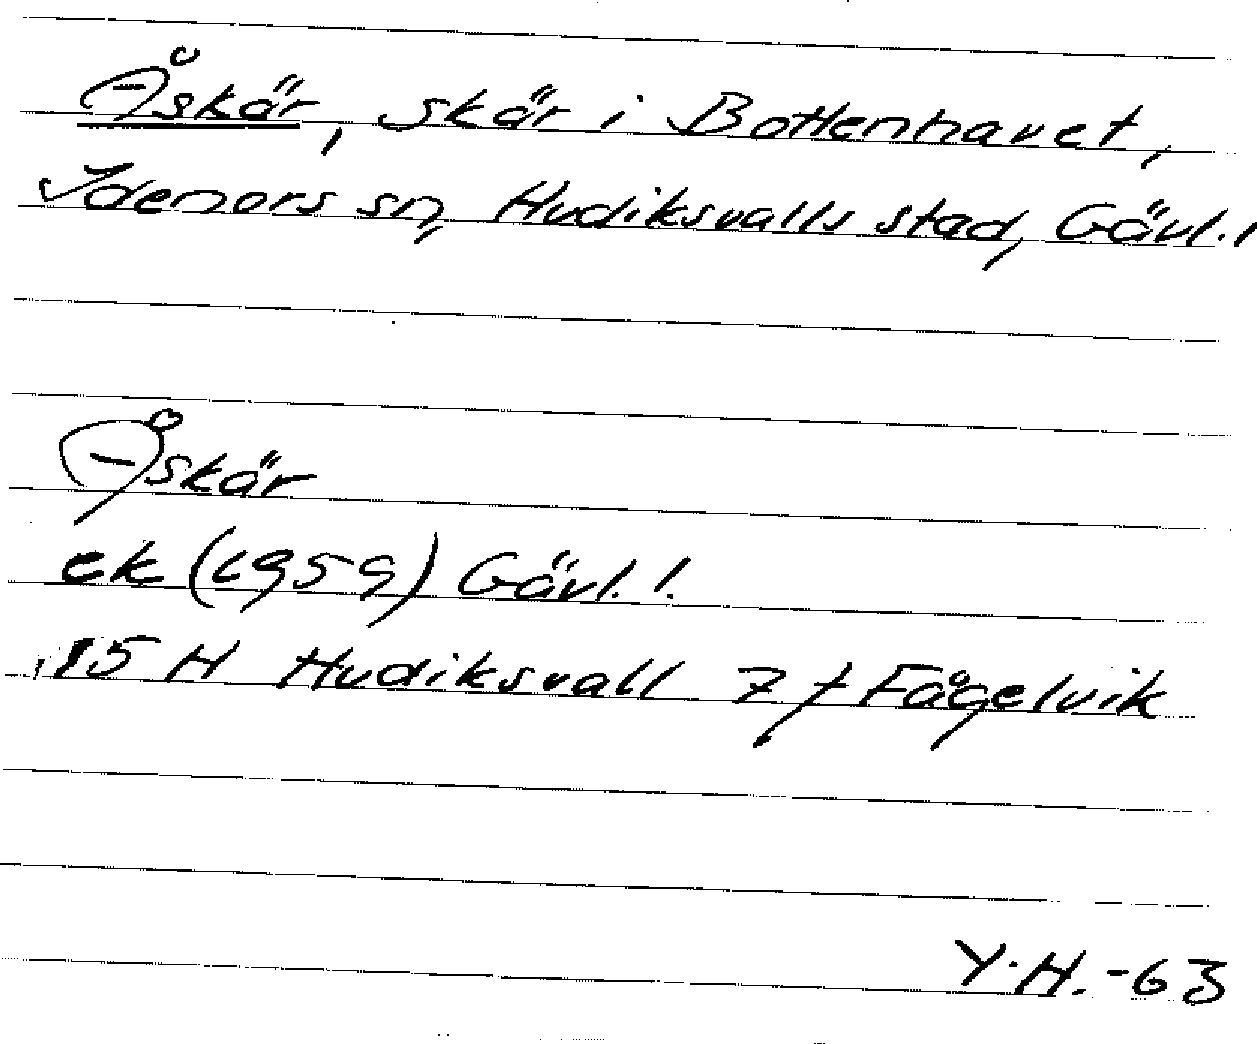 Åskär, skär i Bottenhavet,
Idenors sn, Hudiksvalls stad, Gävl. l
Åskär
ek (1959) Gävl. l.
15 H Hudiksvall 7 f Fågelvik
Y.H. -63